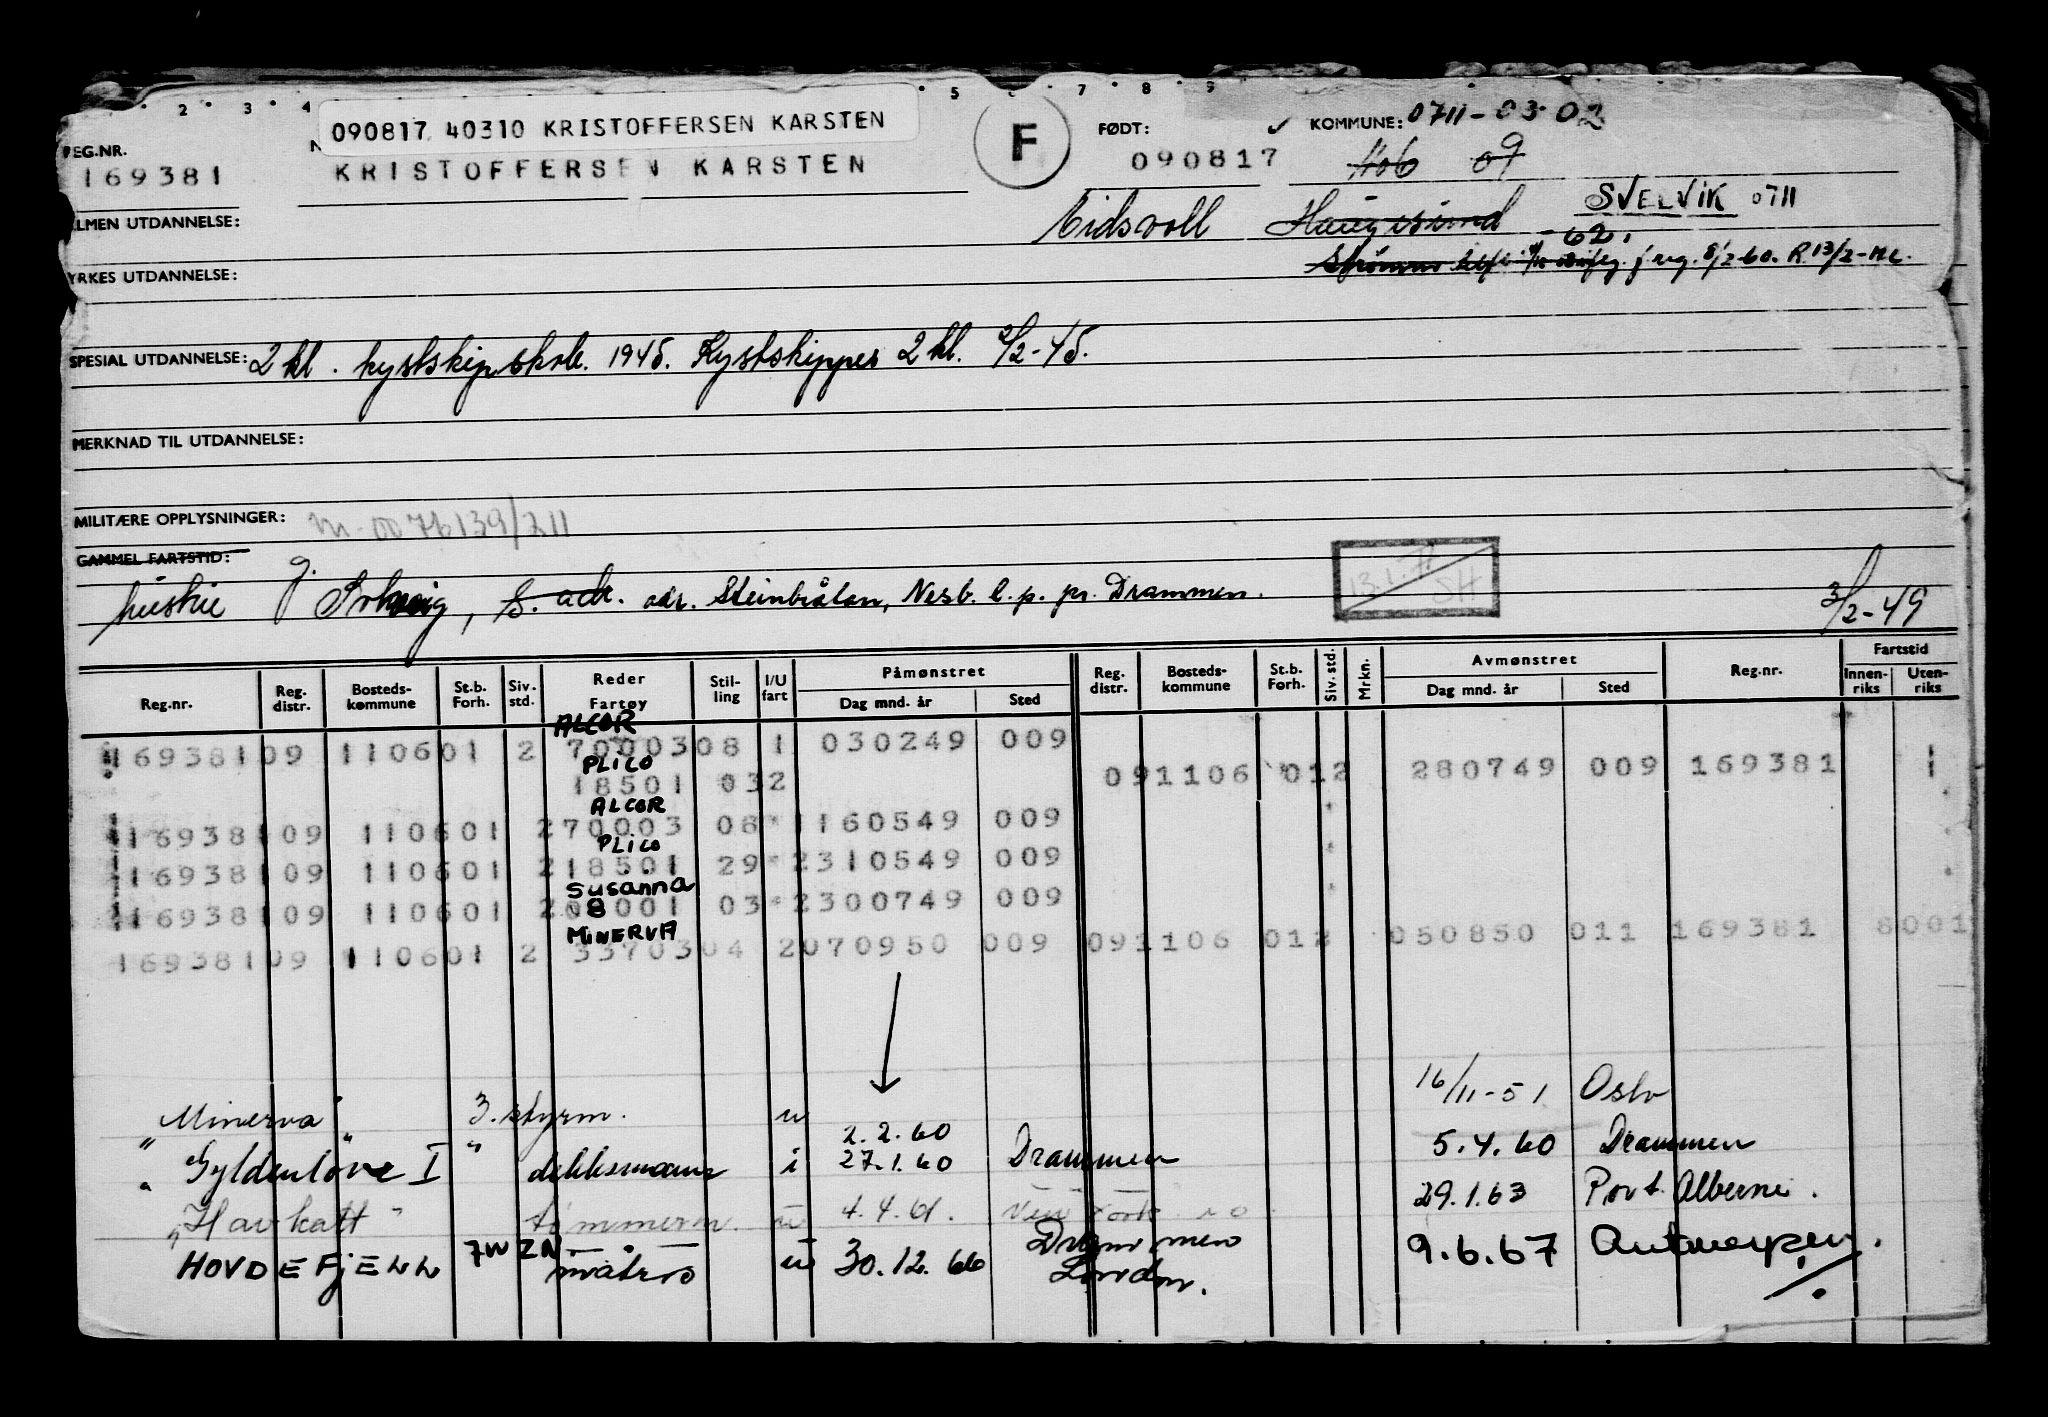 2 3 4 5 7 8 9
090817 40310 KRISTOFFERSEN KARSTEN
F
FØDT:
KOMMUNE: 0711-03 02
EG.NR.
169381
KRISTOFFERSEN KARSTEN
090817
1106 09
LMEN UTDANNELSE:
Eidsvoll Haugesund SVELVIK 0711
-62.
YRKES UTDANNELSE:
Strømmo j reg. 8/2-60. R.13/2-
SPESIAL UTDANNELSE: 2 kl. kystskip.skole. 1945. Kystskipper 2 kl. 2/2-45.
MERKNAD TIL UTDANNELSE:
MILITÆRE OPPLYSNINGER: m-0076139/211
GAMMEL FARTSTID:
g.
hustru adr. adr. Steinbråtan, Nesb. l. p. pr. Drammen.
SH
3/2-49
Reg.nr. Reg. distr. Bosteds- kommune St.b. Forh. Siv. std. Reder Fartøy Stil- ling I/U fart Påmønstret Dag mnd. år Sted Reg. distr. Bosteds- kommune St.b. Forh. Siv. std. Mrkn. Avmønstret Dag mnd. år Sted Reg.nr. Fartstid Innen- riks Uten- riks
ALCOR
169381 09 1106 01 2 70003 08 1 030249 009
PLICO
18501 03 2 09 1106 012 280749 009 169381 1
ALCOR
169381 09 1106 01 2 70003 08 1 160549 009
PLICO
169381 09 1106 01 2 18501 29 2 310549 009
SUSANNA
169381 09 1106 01 2 08001 03 2 300749 009
MINERVA
169381 09 1106 01 2 33703 04 2 070950 009 09 1106 012 050850 011 169381 8001
"Minerva" 3. styrm. u 16/11-51 Oslo
2.2.60
"Gyldenløve I" dekksmann i 27.1.60 Drammen 5.4.60 Drammen
"Havkatt" tømmerm. u 4.4.61. 29.1.63 Port Alberni.
Drammen
HOVDEFJELL 7W ZN matros u 30.12.66 London. 9.6.67 Antwerpen.